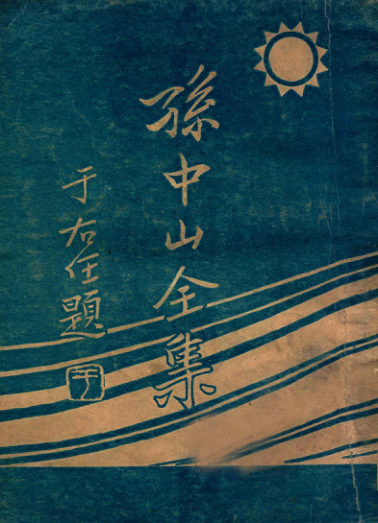 孫中山全集
于右任題
于